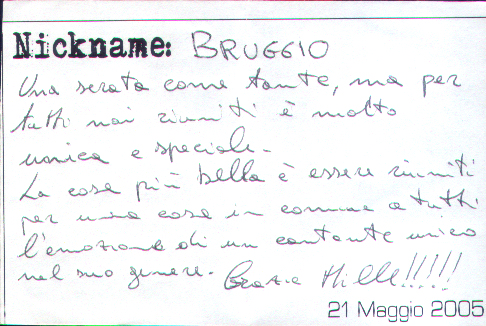 Nickname: BRUGGIO
Una serata come tante, ma per
tutti noi riuniti è molto
unica e speciale.
La cosa più bella è essere riuniti
per una cosa in comune a tutti
l'emozione di un cantante unico
nel suo genere. Grazie Mille!!!!!
21 Maggio 2005